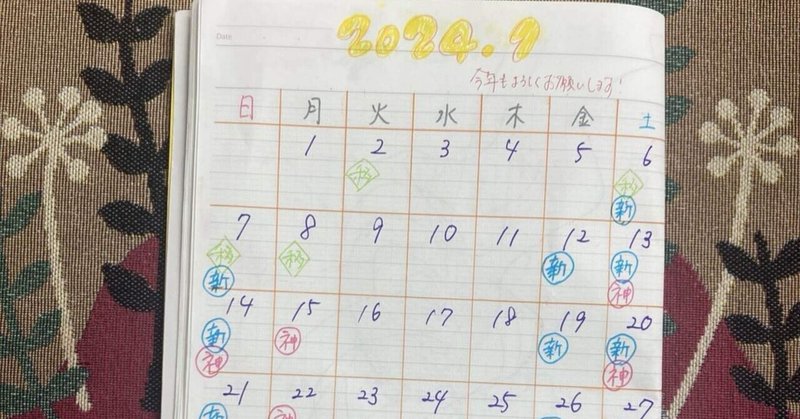 2024.1
Date
今年もよろしくお願いします!
日 月 火 水 木 金 土
1 2 3 4 5 6
新
7 8 9 10 11 12 13
新 新 新
神
14 15 16 17 18 19 20
新 神 新 新
神 神
21 22 23 24 25 26 27